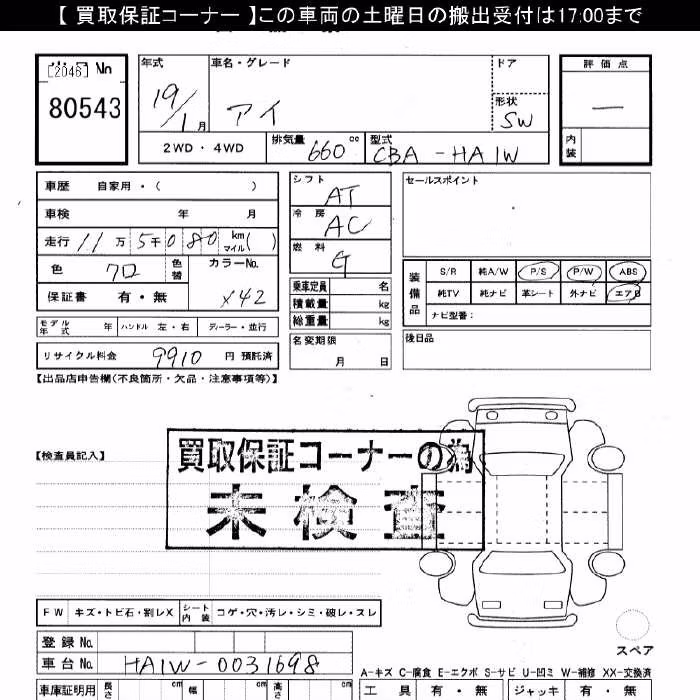 【 買取保証コーナー 】この車両の土曜日の搬出受付は17:00まで
[2046] No
80543
年式
19/1 月
車名・グレード
アイ
ドア
形状
SW
評価点
―
内装
2WD ・ 4WD
排気量 660 cc
型式 CBA-HA1W
車歴 自家用・( )
車検 年 月
走行 11万 5千 0 8 0 km マイル ( )
色 クロ 色替
カラーNo. X42
保証書 有・無
モデル年式 年 ハンドル 左・右 ディーラー・並行
リサイクル料金 9910 円 預託済
シフト AT
冷房 AC
燃料 G
乗車定員 名
積載量 kg
総重量 kg
名変期限
月 日
セールスポイント
装備品
S/R 純A/W P/S P/W ABS
純TV 純ナビ 革シート 外ナビ エアB
ナビ型番:
後日品
【出品店申告欄(不良箇所・欠品・注意事項等)】
【検査員記入】
買取保証コーナーの為
未検査
FW キズ・トビ石・割レX シート内装 コゲ・穴・汚レ・シミ・破レ・スレ
登録 No.
車台 No. HA1W-0031698
車庫証明用 長さ cm 幅 cm 高さ cm
スペア
A-キズ C-腐食 E-エクボ S-サビ U-凹ミ W-補修 XX-交換済
工具 有・無 ジャッキ 有・無